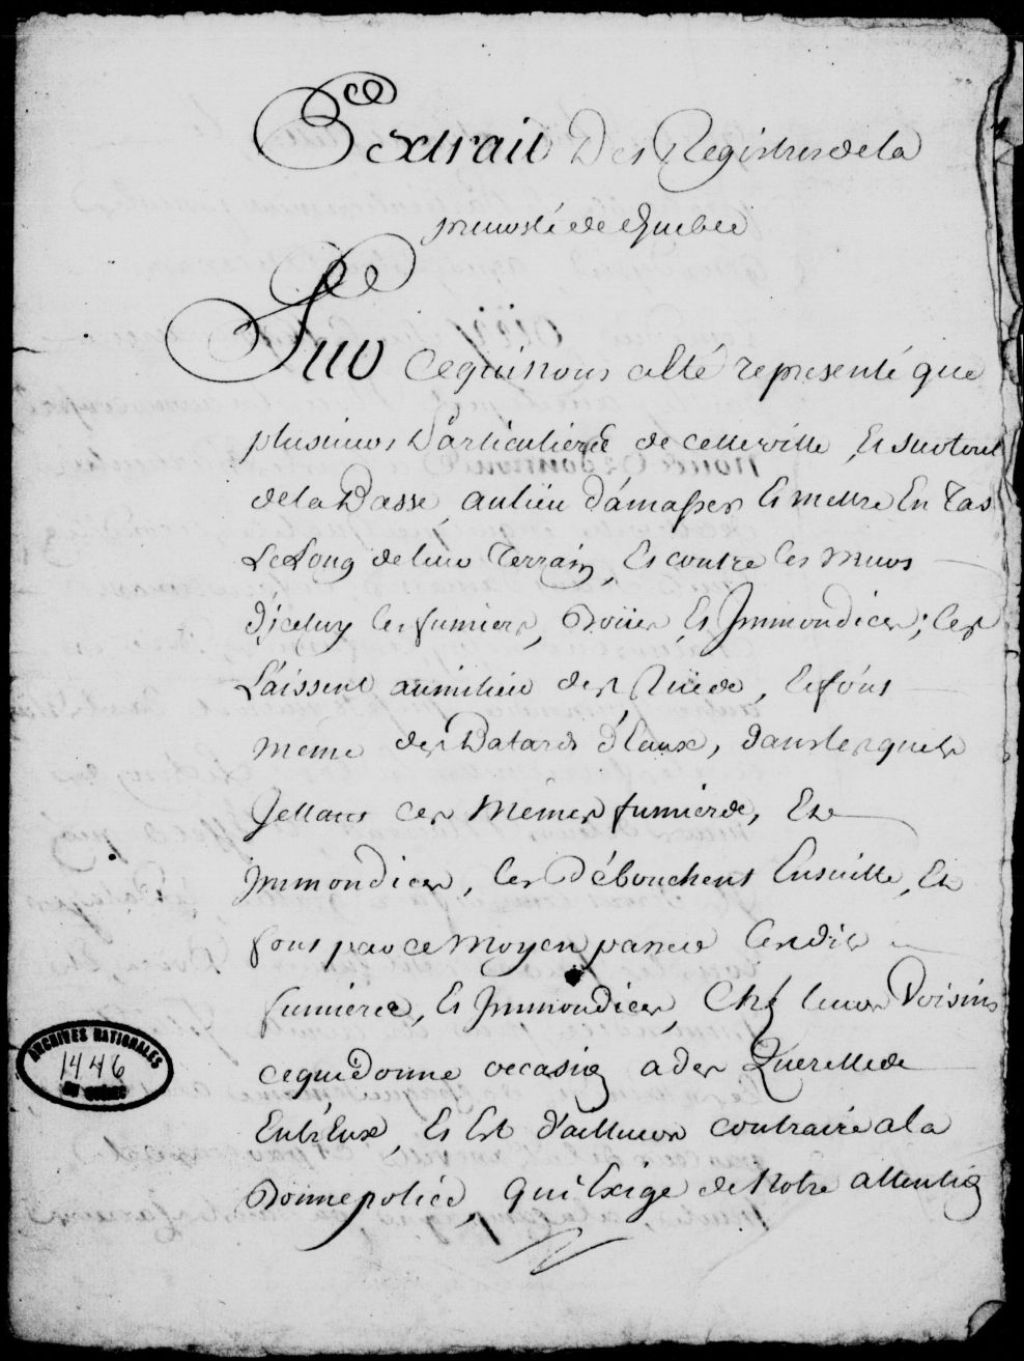 Extrait Des Registres de la
prevosté de Quebec
Sur Ce qui nous a Eté representé que
plusieurs Particuliers de cette ville, Et surtout
de la Basse, au lieu d'amasser Et mettre En Tas
Le Long de leur Terrain, Et contre les Murs
d'jceluy les fumiers, Boües, Et Immondices; les
Laissent au milieu des Rües, Et font
meme des Batards d'Eaux, dans lesquels
Jettans ces Mêmes fumiers, Et
Jmmondices, les Débouchent Ensuitte, Et
font par ce Moyen passer lesdits
fumiers, Et Jmmondices, Chez leurs Voisins
ce qui donne occasion a des Querelles
Entr'Eux, Et Est d'ailleurs contraire a la
Bonne police, qui Exige de Notre attention
ARCHIVES NATIONALES
1446
DU QUÉBEC